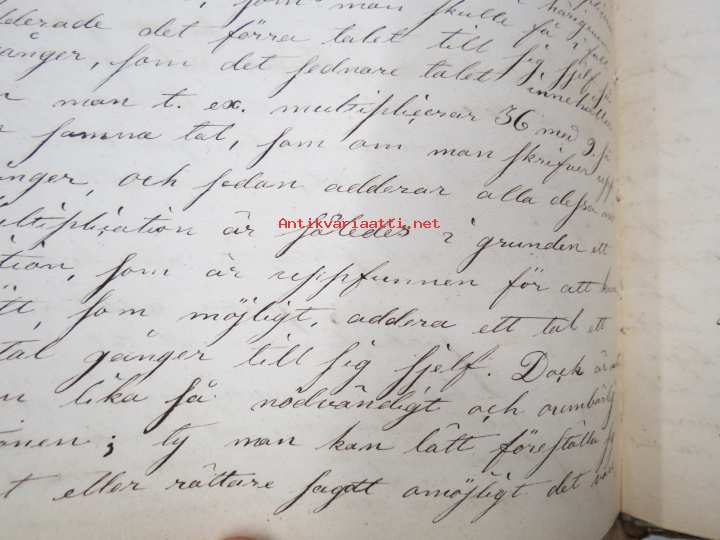 som man skulle få i fall
derade det förra talet till sig sjelf så
gånger, som det sednare talet innehåller
man t. ex. multiplicerar 36 med 9, så
samma tal, som om man skrifver upp
ånger, och sedan adderar alla dessa
ultiplication är således i grunden ett
Antikvariaatti.net
tion, som är uppfunnen för att
tt, som möjligt, addera ett tal ett
tal gånger till sig sjelf. Dock är
lika så nödvändigt och oumbärlig
onen; ty man kan lätt föreställa
t eller rättare sagdt omöjligt det